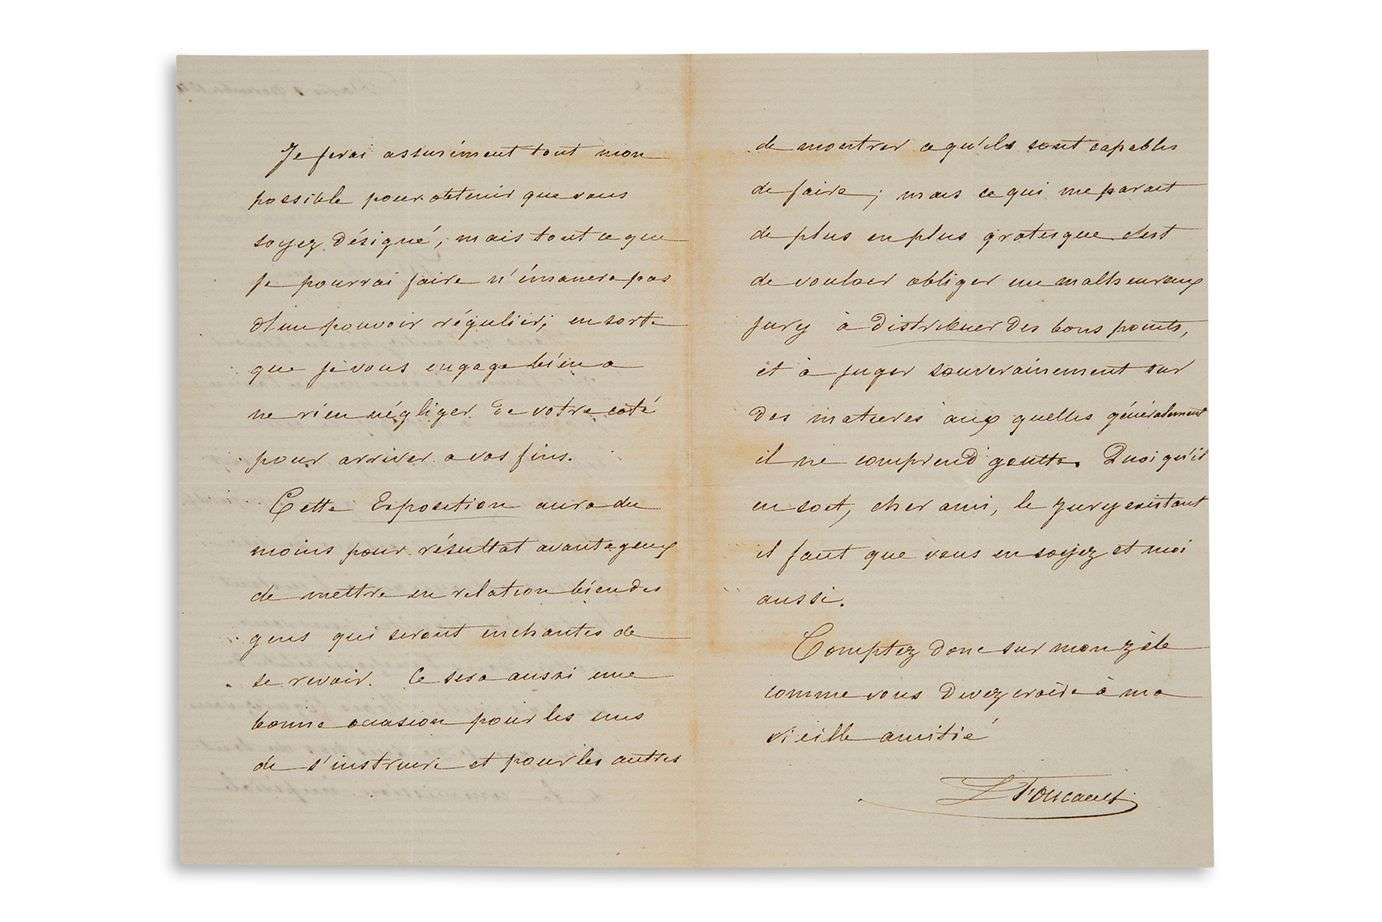 Je ferai assurément tout mon
possible pour obtenir que vous
soyez désigné; mais tout ce que
je pourrai faire n'émanera pas
d'un pouvoir régulier; en sorte
que je vous engage bien a
ne rien négliger de votre coté
pour arriver a vos fins.
Cette Exposition aura du
moins pour résultat avantageux
de mettre en relation bien des
gens qui seront enchantés de
se revoir. Ce sera aussi une
bonne occasion pour les uns
de s'instruire et pour les autres
de montrer ce qu'ils sont capables
de faire; mais ce qui me parait
de plus en plus grotesque c'est
de vouloir obliger un malheureux
jury à distribuer des bons points,
et à juger souverainement sur
des matieres aux quelles généralement
il ne comprend goutte. Quoiqu'il
en soit, cher ami, le jury existant
il faut que vous en soyez et moi
aussi.
Comptez donc sur mon zèle
comme vous devez croire à ma
vieille amitié
L Foucault